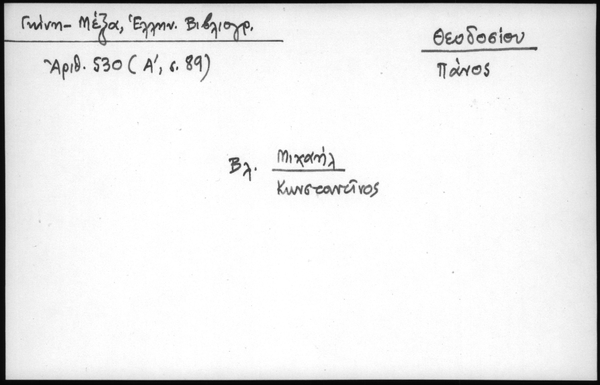 Γκίνη - Μέξα, Ἑλλην. Βιβλιογρ.
Ἀριθ. 530 (Α΄, σ. 89)
Θεοδοσίου
Πάνος
Βλ. Μιχαήλ
Κωνσταντῖνος